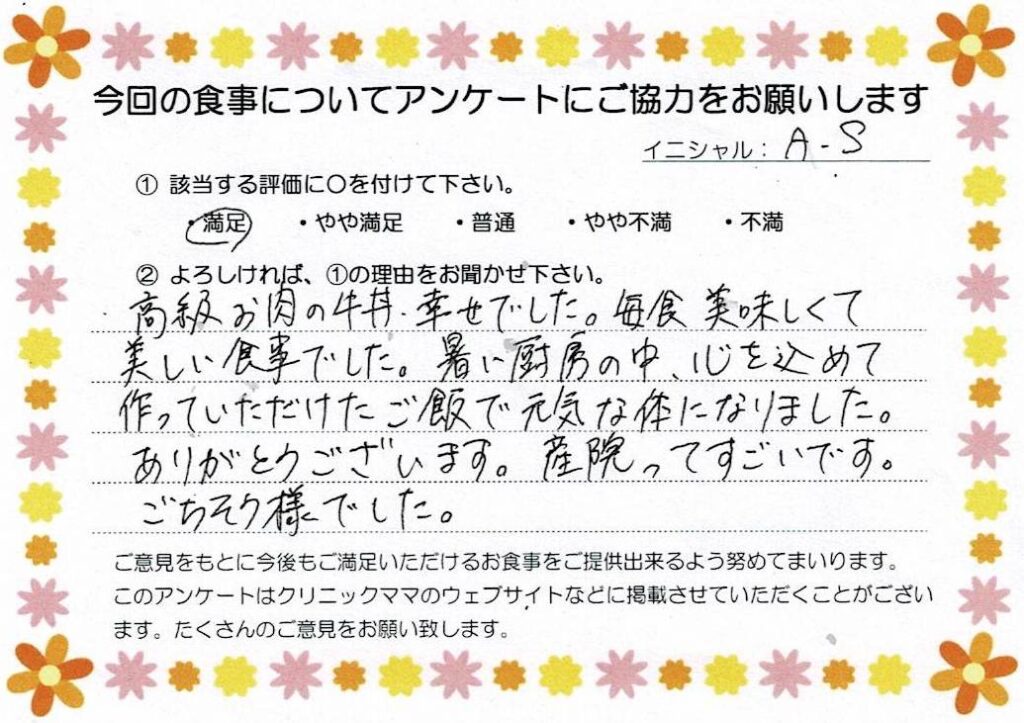 今回の食事についてアンケートにご協力をお願いします
イニシャル： A-S
① 該当する評価に○を付けて下さい。
・満足 ・やや満足 ・普通 ・やや不満 ・不満
② よろしければ、①の理由をお聞かせ下さい。
高級お肉の牛丼・幸せでした。毎食美味しくて
美しい食事でした。暑い厨房の中、心を込めて
作っていただけたご飯で元気な体になりました。
ありがとうございます。産院ってすごいです。
ごちそう様でした。
ご意見をもとに今後もご満足いただけるお食事をご提供出来るよう努めてまいります。
このアンケートはクリニックママのウェブサイトなどに掲載させていただくことがござい
ます。たくさんのご意見をお願い致します。